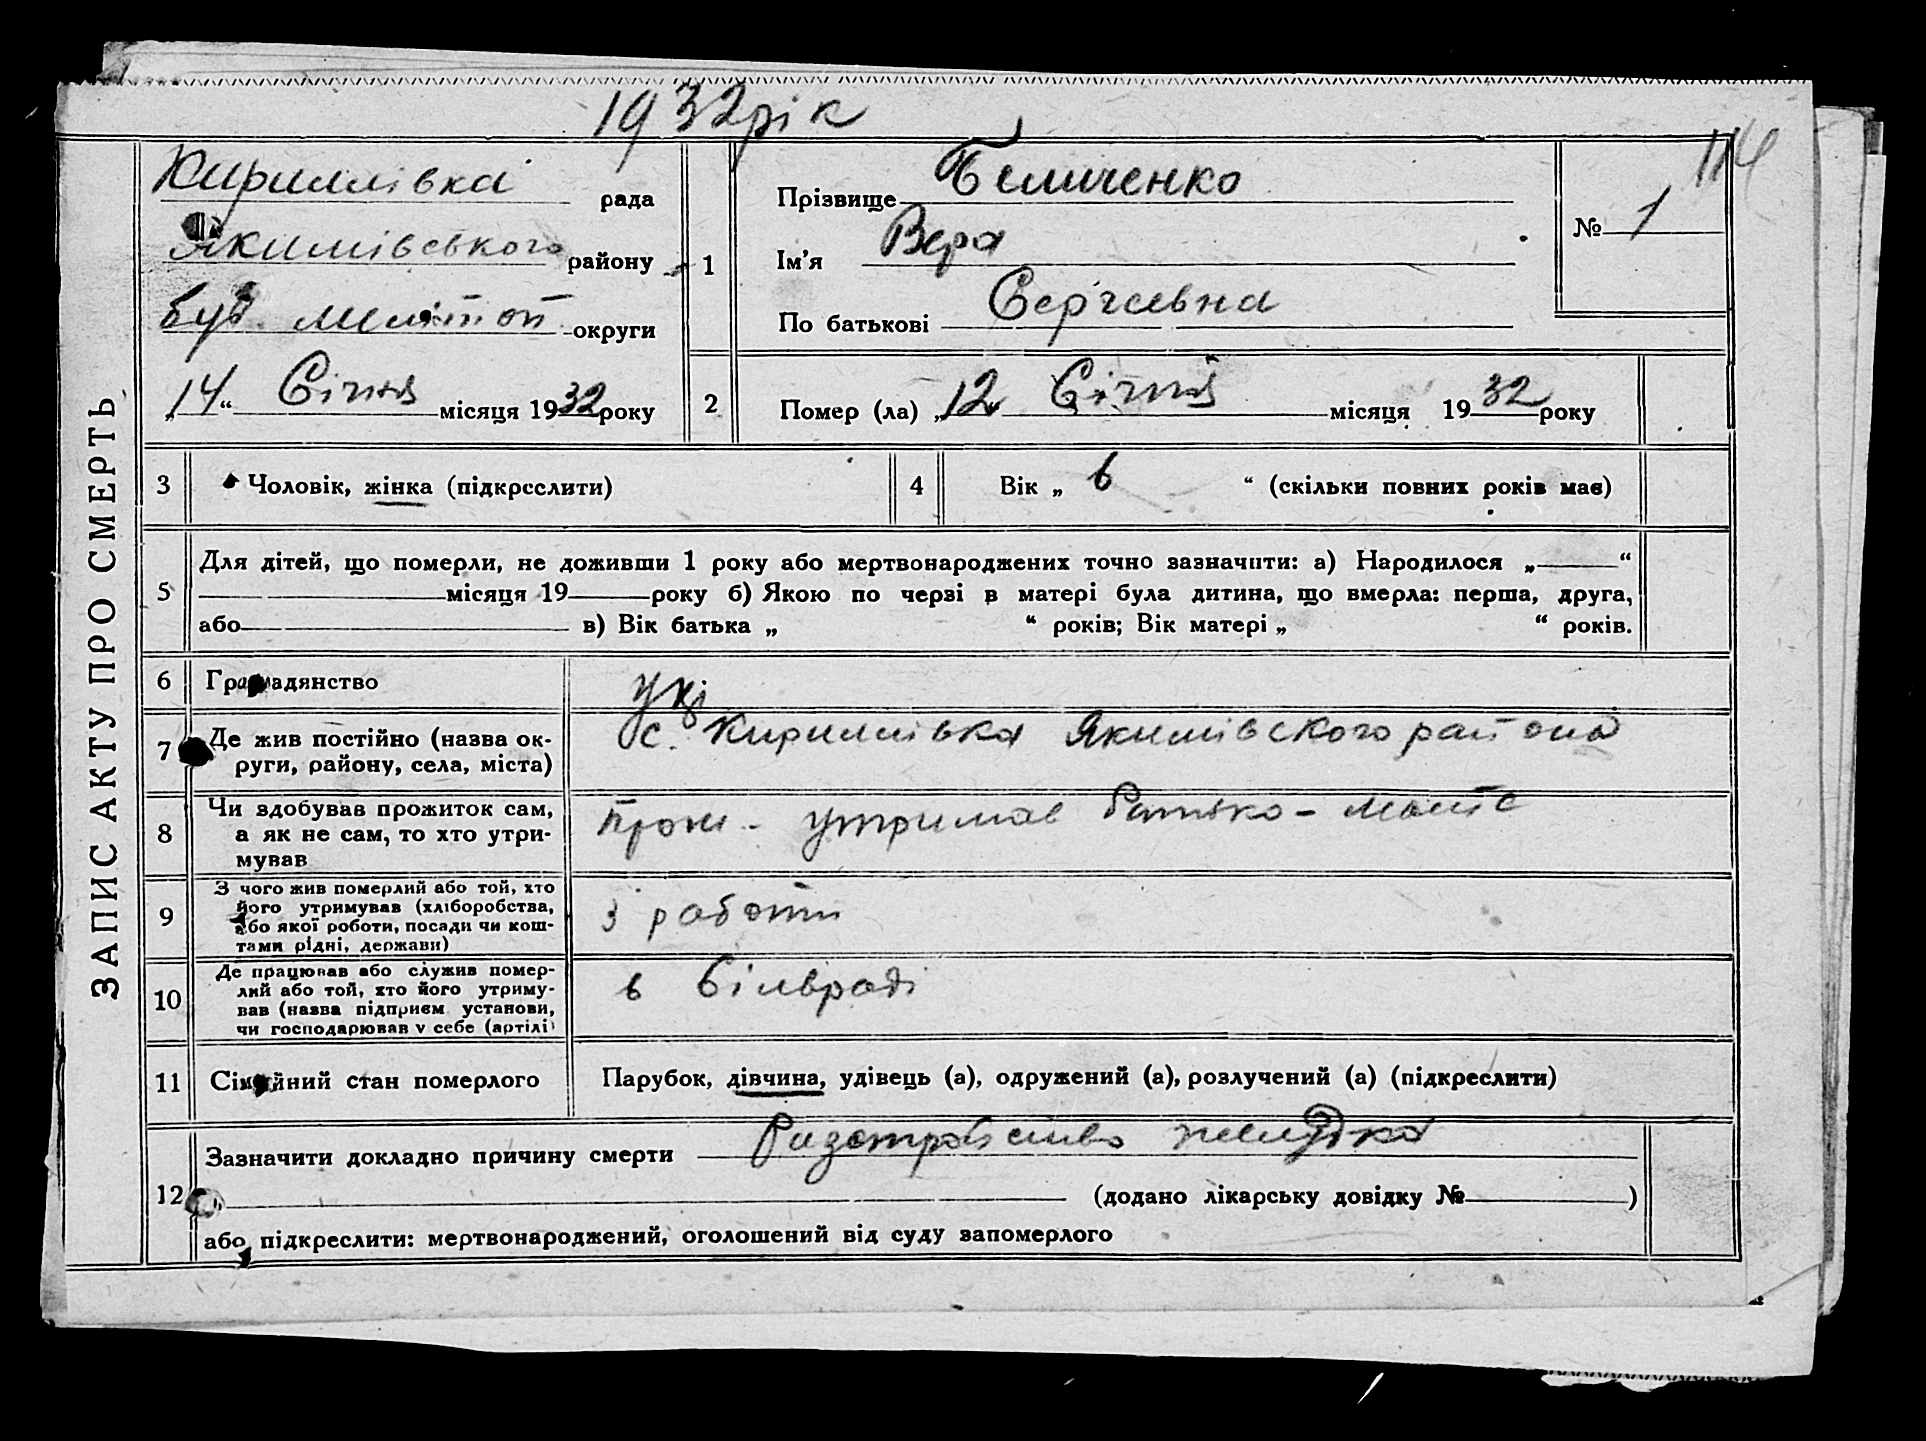 1932 рік
114
ЗАПИС АКТУ ПРО СМЕРТЬ
Кириллівка рада
Якимівського району
був. Мелітоп округи
„14“ Січня місяця 1932 року
1 Прізвище Беличенко
Ім’я Вера
По батькові Сергіевна
№ 1
2 Помер (ла) „12 Січня місяця 1932 року
3 Чоловік, жінка (підкреслити)
4 Вік „ 6 “ (скільки повних років має)
5 Для дітей, що померли, не доживши 1 року або мертвонароджених точно зазначити: а) Народилося „ “
місяця 19 року б) Якою по черзі в матері була дитина, що вмерла: перша, друга,
або в) Вік батька „ “ років; Вік матері „ “ років.
6 Громадянство укі
7 Де жив постійно (назва округи, району, села, міста)
с. Кириллівка Якимівского района
8 Чи здобував прожиток сам,
а як не сам, то хто утримував
утримав Батько - мате
9 З чого жив померлий або той, хто
його утримував (хліборобства,
або якої роботи, посади чи коштами рідні, держави)
з работи
10 Де працював або служив померлий або той, хто його утримував (назва підприєм установи,
чи господарював у себе (артілі)
в Сільраді
11 Сімейний стан померлого Парубок, дівчина, удівець (а), одружений (а), розлучений (а) (підкреслити)
12 Зазначити докладно причину смерти Разстройство желудка
(додано лікарську довідку № )
або підкреслити: мертвонароджений, оголошений від суду запомерлого